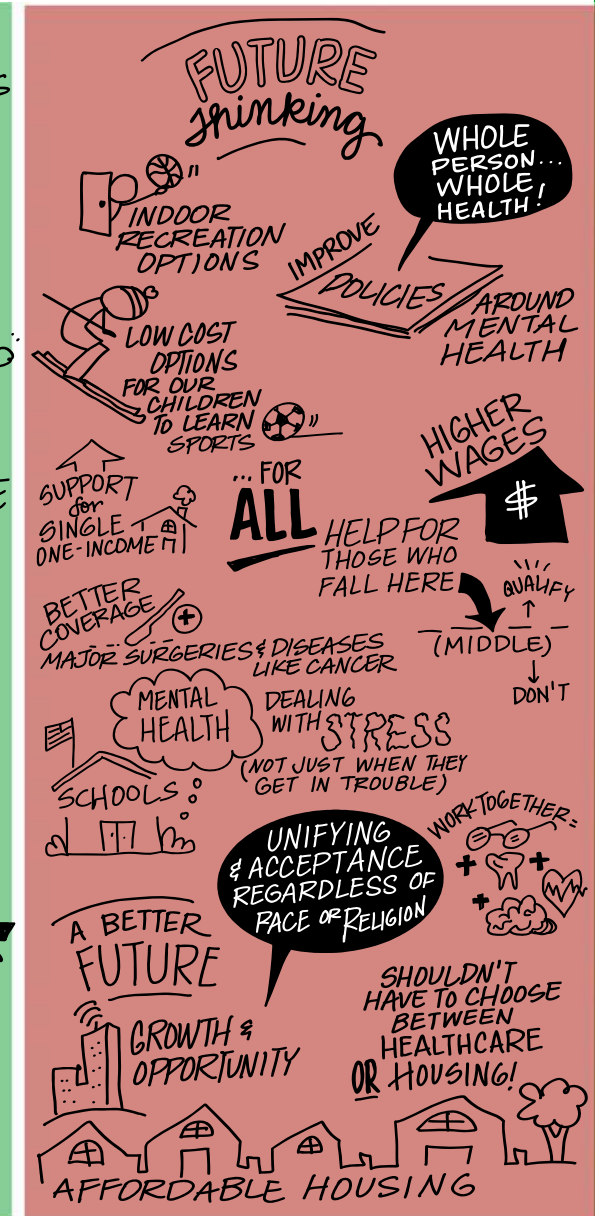 FUTURE
thinking
WHOLE
PERSON...
WHOLE
HEALTH!
INDOOR
RECREATION
OPTIONS
IMPROVE
POLICIES
AROUND
MENTAL
HEALTH
LOW COST
OPTIONS
FOR OUR
CHILDREN
TO LEARN
SPORTS
HIGHER
WAGES
$
SUPPORT
for
SINGLE
ONE-INCOME
...FOR
ALL
HELP FOR
THOSE WHO
FALL HERE
QUALIFY
(MIDDLE)
DON'T
BETTER
COVERAGE
MAJOR SURGERIES & DISEASES
LIKE CANCER
MENTAL
HEALTH
DEALING
WITH STRESS
(NOT JUST WHEN THEY
GET IN TROUBLE)
SCHOOLS
WORK TOGETHER=
UNIFYING
& ACCEPTANCE
REGARDLESS OF
RACE OR RELIGION
A BETTER
FUTURE
GROWTH &
OPPORTUNITY
SHOULDN'T
HAVE TO CHOOSE
BETWEEN
HEALTHCARE
OR HOUSING!
AFFORDABLE HOUSING